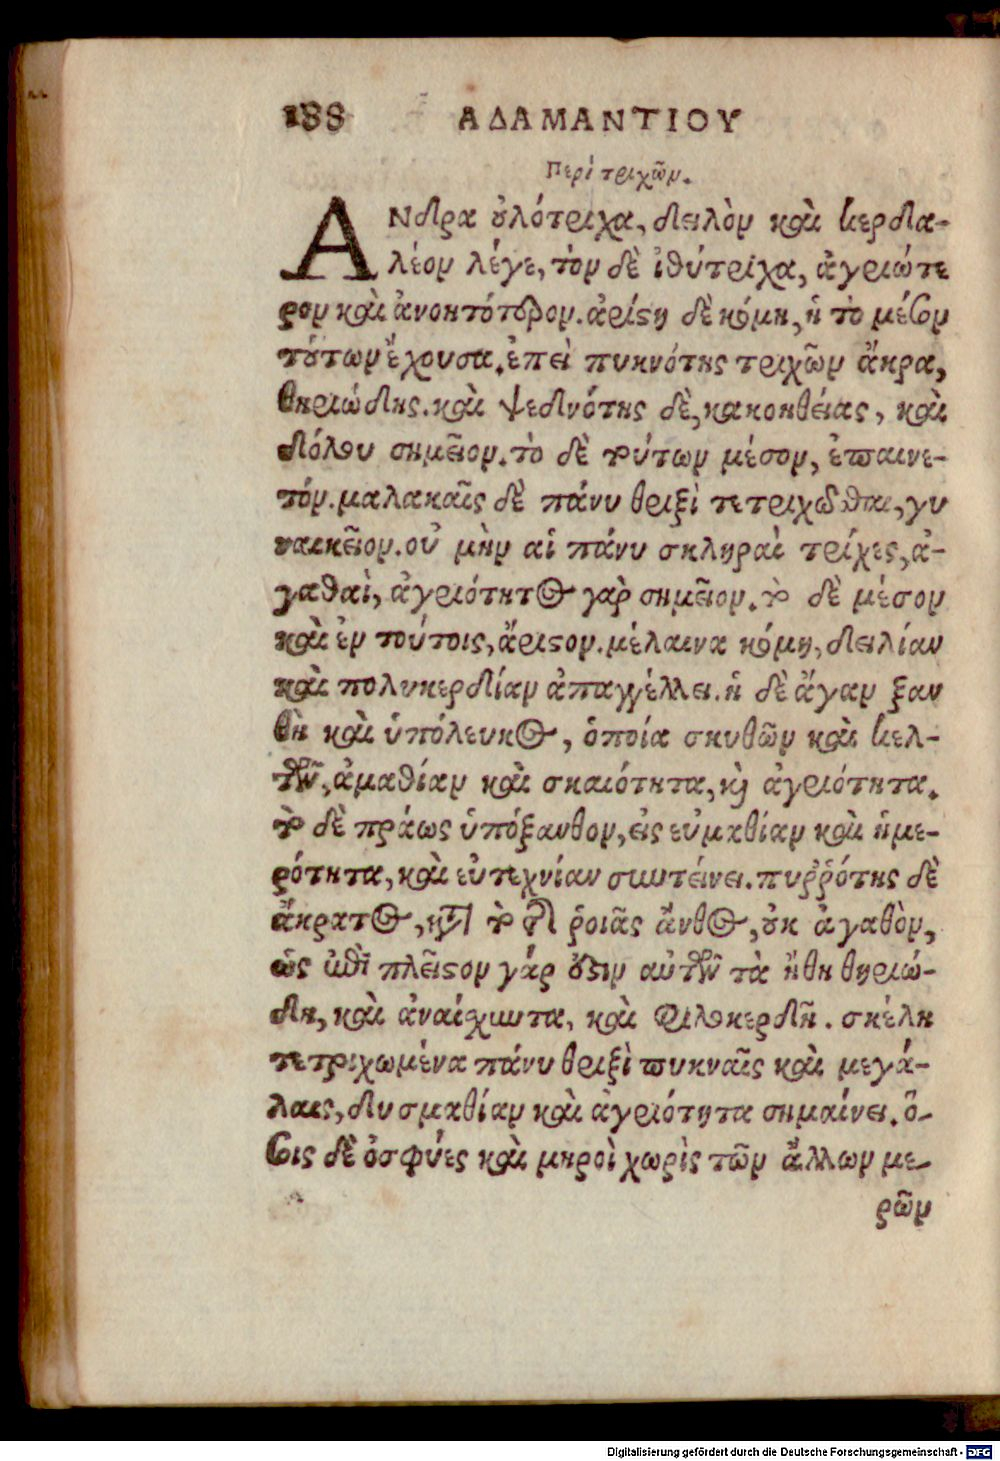 188 ΑΔΑΜΑΝΤΙΟΥ
Περὶ τριχῶν.
ΑΝδρα οὐλότριχα, δειλὸν καὶ κερδα-
λέον λέγε, τὸν δὲ ἰθύτριχα, ἀγριώτε
ρον καὶ ἀνοητότερον. ἀρίστη δὲ κόμη, ἡ τὸ μέσον
τούτων ἔχουσα. ἐπεὶ πυκνότης τριχῶν ἄκρα,
θηριώδης. καὶ ψεδνότης δὲ, κακοηθείας, καὶ
δόλου σημεῖον. τὸ δὲ τούτων μέσον, ἐπαινε-
τόν. μαλακαῖς δὲ πάνυ θριξὶ τετριχῶσθαι, γυ
ναικεῖον. οὐ μὴν αἱ πάνυ σκληραὶ τρίχες, ἀ-
γαθαὶ, ἀγριότητος γὰρ σημεῖον. τὸ δὲ μέσον
καὶ ἐν τούτοις, ἄριστον. μέλαινα κόμη, δειλίαν
καὶ πολυκερδίαν ἀπαγγέλλει. ἡ δὲ ἄγαν ξαν
θὴ καὶ ὑπόλευκος, ὁποία σκυθῶν καὶ κελ-
τῶν, ἀμαθίαν καὶ σκαιότητα, καὶ ἀγριότητα.
τὸ δὲ πράως ὑπόξανθον, εἰς εὐμαθίαν καὶ ἡμε-
ρότητα, καὶ εὐτεχνίαν συντείνει. πυῤῥότης δὲ
ἄκρατος, κατὰ τὸ τῆς ῥοιᾶς ἄνθος, οὐκ ἀγαθὸν,
ὡς ἐπὶ πλεῖστον γάρ οὖσιν αὐτῶν τὰ ἤθη θηριώ-
δη, καὶ ἀναίσχυντα, καὶ φιλοκερδῆ. σκέλη
τετριχωμένα πάνυ θριξὶ πυκναῖς καὶ μεγά-
λαις, δυσμαθίαν καὶ ἀγριότητα σημαίνει. ὅ-
σοις δὲ ὀσφύες καὶ μηροὶ χωρὶς τῶν ἄλλων με-
ρῶν
Digitalisierung gefördert durch die Deutsche Forschungsgemeinschaft - DFG